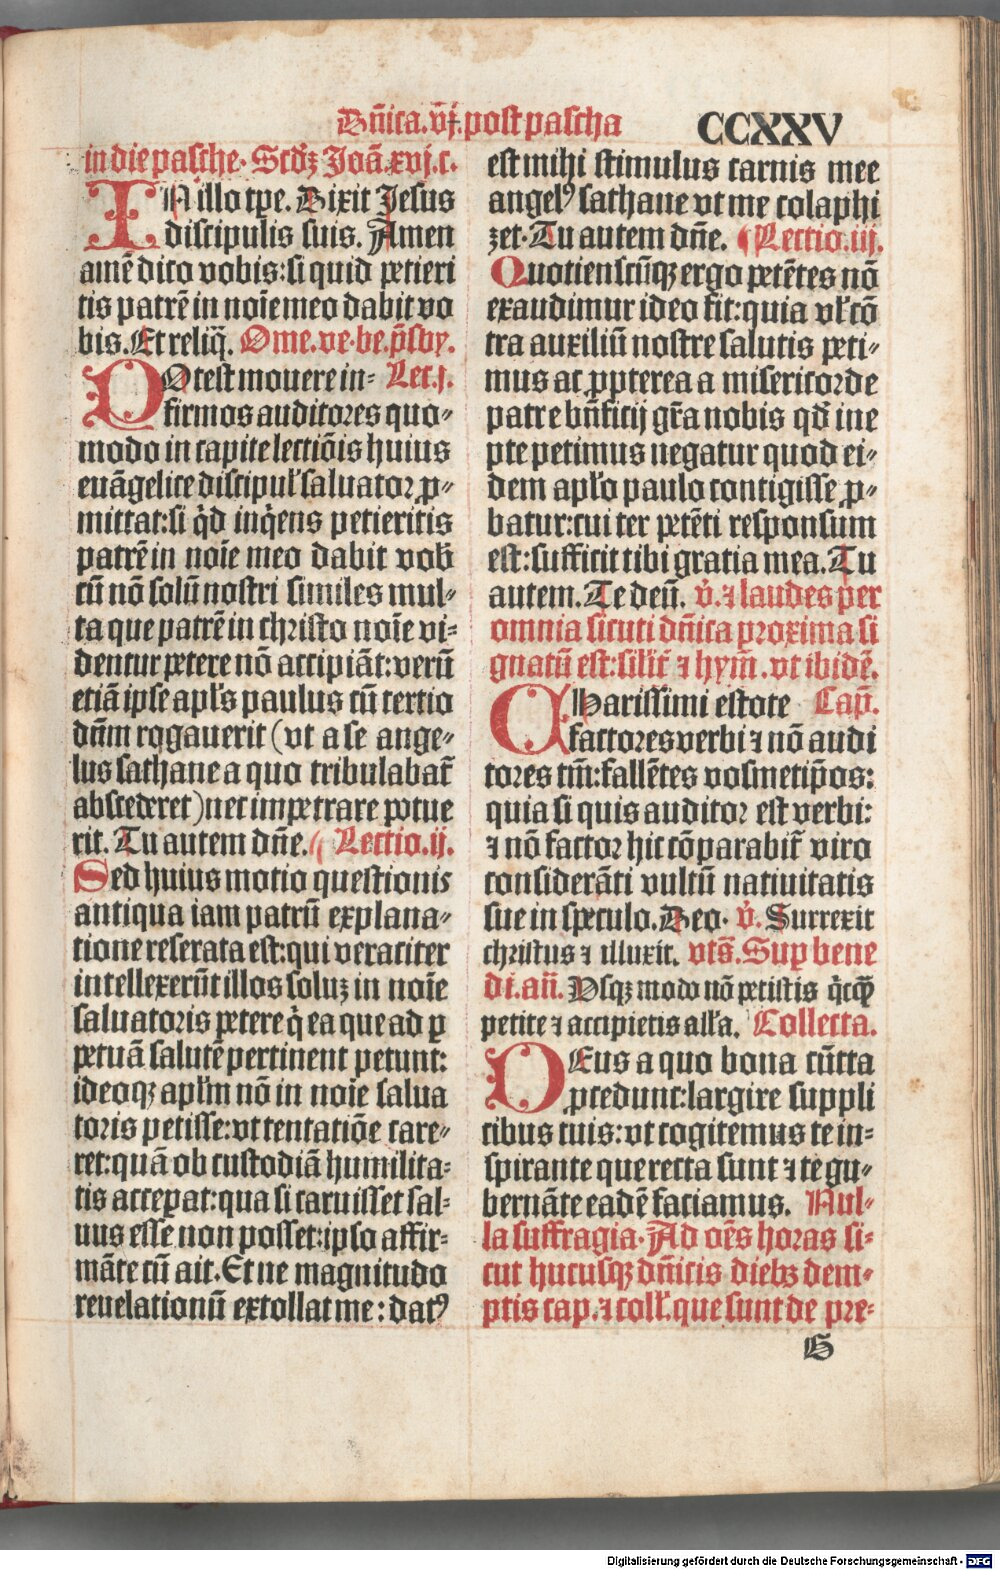 Dn̄ica.vj̄.post pascha CCXXV
in die pasche. Scd̄ꝫ Joā.xvj.c.
IN illo tꝑe. Dixit Jesus
discipulis suis. Amen
amē dico vobis: si quid petieri
tis patrē in noīe meo dabit vo
bis. Et reliq̄. Ome.ve.be.p̄sby.
POtest mouere in- Lec.j.
firmos auditores quo-
modo in capite lectiōis huius
euāgelice discipul̓ saluator ꝓ-
mittat: si q̇d inq̇ens petieritis
patrē in noīe meo dabit vob̓
cū nō solū nostri similes mul-
ta que patrē in christo noīe vi-
dentur petere nō accipiāt: verū
etiā ipse apl̓s paulus cū tercio
dn̄m rogauerit (vt a se ange-
lus sathane a quo tribulabat̄
abscederet) nec impetrare potue
rit. Tu autem dn̄e. Lectio.ij.
Sed huius motio questionis
antiqua iam patrū explana-
tione reserata est: qui veraciter
intellexerūt illos soluꝫ in noīe
saluatoris petere q̇ ea que ad ꝑ
petuā salutē pertinent petunt:
ideoqꝫ apl̓m nō in noīe salua
toris petisse: vt tentatiōe care-
ret: quā ob custodiā humilita-
tis acceꝑat: qua si caruisset sal-
uus esse non posset: ipso affir-
māte cū ait. Et ne magnitudo
reuelationū extollat me: datꝰ
est mihi stimulus carnis mee
angelꝰ sathane vt me colaphi
zet. Tu autem dn̄e. Lectio.iij.
Quotienscūqꝫ ergo petētes nō
exaudimur ideo fit: quia vl̓ cō
tra auxiliū nostre salutis peti-
mus ac ꝓpterea a misericorde
patre bn̄ficij gr̄a nobis qd̓ ine
pte petimus negatur quod ei-
dem apl̓o paulo contigisse ꝓ-
batur: cui ter petēti responsum
est: sufficit tibi gratia mea. Tu
autem. Te deū. v̇. ⁊ laudes per
omnia sicuti dn̄ica proxima si
gnatū est: silīt̄ ⁊ hym̄. vt ibidē.
CHarissimi estote Cap̄.
factores verbi ⁊ nō audi
tores tm̄: fallētes vosmetip̄os:
quia si quis auditor est verbi:
⁊ nō factor hic cōparabit̄ viro
considerāti vultū natiuitatis
sue in speculo. Deo. v̇. Surrexit
christus ⁊ illuxit. vts̄. Suꝑ bene
di. an̄. Usqꝫ modo nō petistis q̇cqȝ
petite ⁊ accipietis all̓a. Collecta.
DEus a quo bona cūcta
ꝓcedunt: largire suppli
cibus tuis: vt cogitemus te in-
spirante que recta sunt ⁊ te gu-
bernāte eadē faciamus. Nul-
la suffragia. Ad oēs horas si-
cut hucusqꝫ dn̄icis diebꝫ dem-
ptis cap. ⁊ coll̓. que sunt de pre-
G
Digitalisierung gefördert durch die Deutsche Forschungsgemeinschaft - DFG